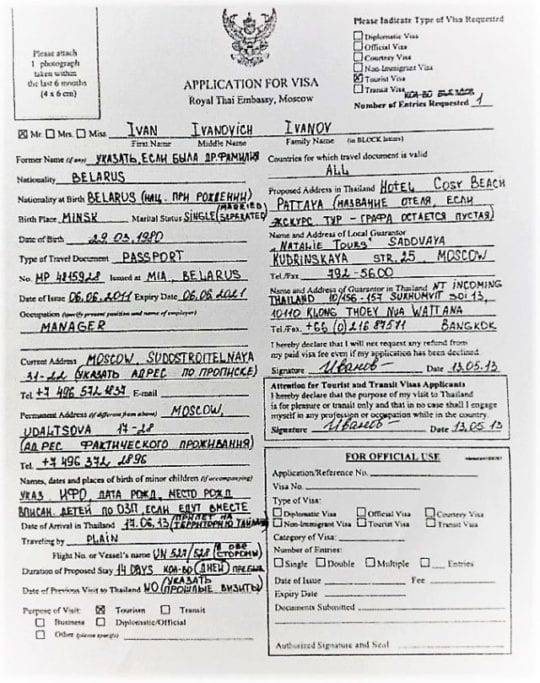 Please attach
1 photograph
taken within
the last 6 months
(4 x 6 cm)
APPLICATION FOR VISA
Royal Thai Embassy, Moscow
Please Indicate Type of Visa Requested
Diplomatic Visa
Official Visa
Courtesy Visa
Non-Immigrant Visa
Tourist Visa
Transit Visa КОЛ-ВО
Number of Entries Requested 1
Mr Mrs. Miss IVAN IVANOVICH IVANOV
First Name Middle Name Family Name (in BLOCK letters)
Former Name (if any) УКАЗАТЬ, ЕСЛИ БЫЛА ДР. ФАМИЛИЯ
Nationality BELARUS
Nationality at Birth BELARUS (НАЦ. ПРИ РОЖДЕНИИ)
Birth Place MINSK Marital Status SINGLE (MARRIED) (SEPERATED)
Date of Birth 29.03.1980
Type of Travel Document PASSPORT
No. MP 4215928 Issued at MIA, BELARUS
Date of Issue 06.06.2011 Expiry Date 06.06.2021
Occupation (specify present position and name of employer)
MANAGER
Current Address MOSCOW, SUDOSTROITELNAYA
31-22 (УКАЗАТЬ АДРЕС ПО ПРОПИСКЕ)
Tel +7 496 572 1837 E-mail
Permanent Address (if different from above) MOSCOW,
UDALTSOVA 17-28
(АДРЕС ФАКТИЧЕСКОГО ПРОЖИВАНИЯ)
Tel +7 496 372 2896
Names, dates and places of birth of minor children (if accompanying)
УКАЗ. ИФО, ДАТА РОЖД, МЕСТО РОЖД
ВПИСАН. ДЕТЕЙ ПО ОЗП, ЕСЛИ ЕДУТ ВМЕСТЕ
Date of Arrival in Thailand 17.06.13 (ПРИЛЕТ НА ТЕРРИТОРИЮ
Traveling by PLAIN
Flight No. or Vessel's name UN 527/528 (В ОБЕ СТОРОНЫ)
Duration of Proposed Stay 14 DAYS КОЛ-ВО (ДНЕЙ)
Date of Previous Visit to Thailand NO (УКАЗАТЬ ПРОШЛЫЕ ВИЗИТЫ)
Purpose of Visit: Tourism Transit
Business Diplomatic/Official
Other (please specify)
Countries for which travel document is valid
ALL
Proposed Address in Thailand HOTEL COSY BEACH
PATTAYA (НАЗВАНИЕ ОТЕЛЯ, ЕСЛИ
ЭКСКУРС. ТУР - ГРАФА ОСТАЕТСЯ ПУСТАЯ)
Name and Address of Local Guarantor
"NATALIE TOURS" SADOVAYA
KUDRINSKAYA STR. 25, MOSCOW
Tel./Fax 792-5600
Name and Address of Guarantor in Thailand NT INCOMING
THAILAND 10/156-157 SUKHUMVIT SOI 13,
10110 KLONG THOEY NUA WATTANA
Tel./Fax. +66 (0) 216 87511 BANGKOK
I hereby declare that I will not request any refund from
my paid visa fee even if my application has been declined
Signature Иванов Date 13.05.13
Attention for Tourist and Transit Visas Applicants
I hereby declare that the purpose of my visit to Thailand
is for pleasure or transit only and that in no case shall I engage
myself in any profession or occupation while in the country.
Signature Иванов Date 13.05.13
FOR OFFICIAL USE
Application/Reference No.
Visa No.
Type of Visa:
Diplomatic Visa Official Visa Courtesy Visa
Non-Immigrant Visa Tourist Visa Transit Visa
Category of Visa:
Number of Entries:
Single Double Multiple Entries
Date of Issue Fee
Expiry Date
Documents Submitted
Authorized Signature and Seal